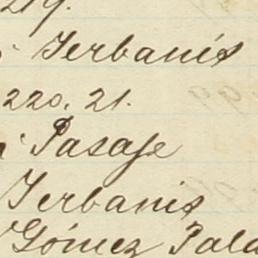 219.
Yerbanís
220. 21.
Pasaje
Yerbanis
Gómez Pala